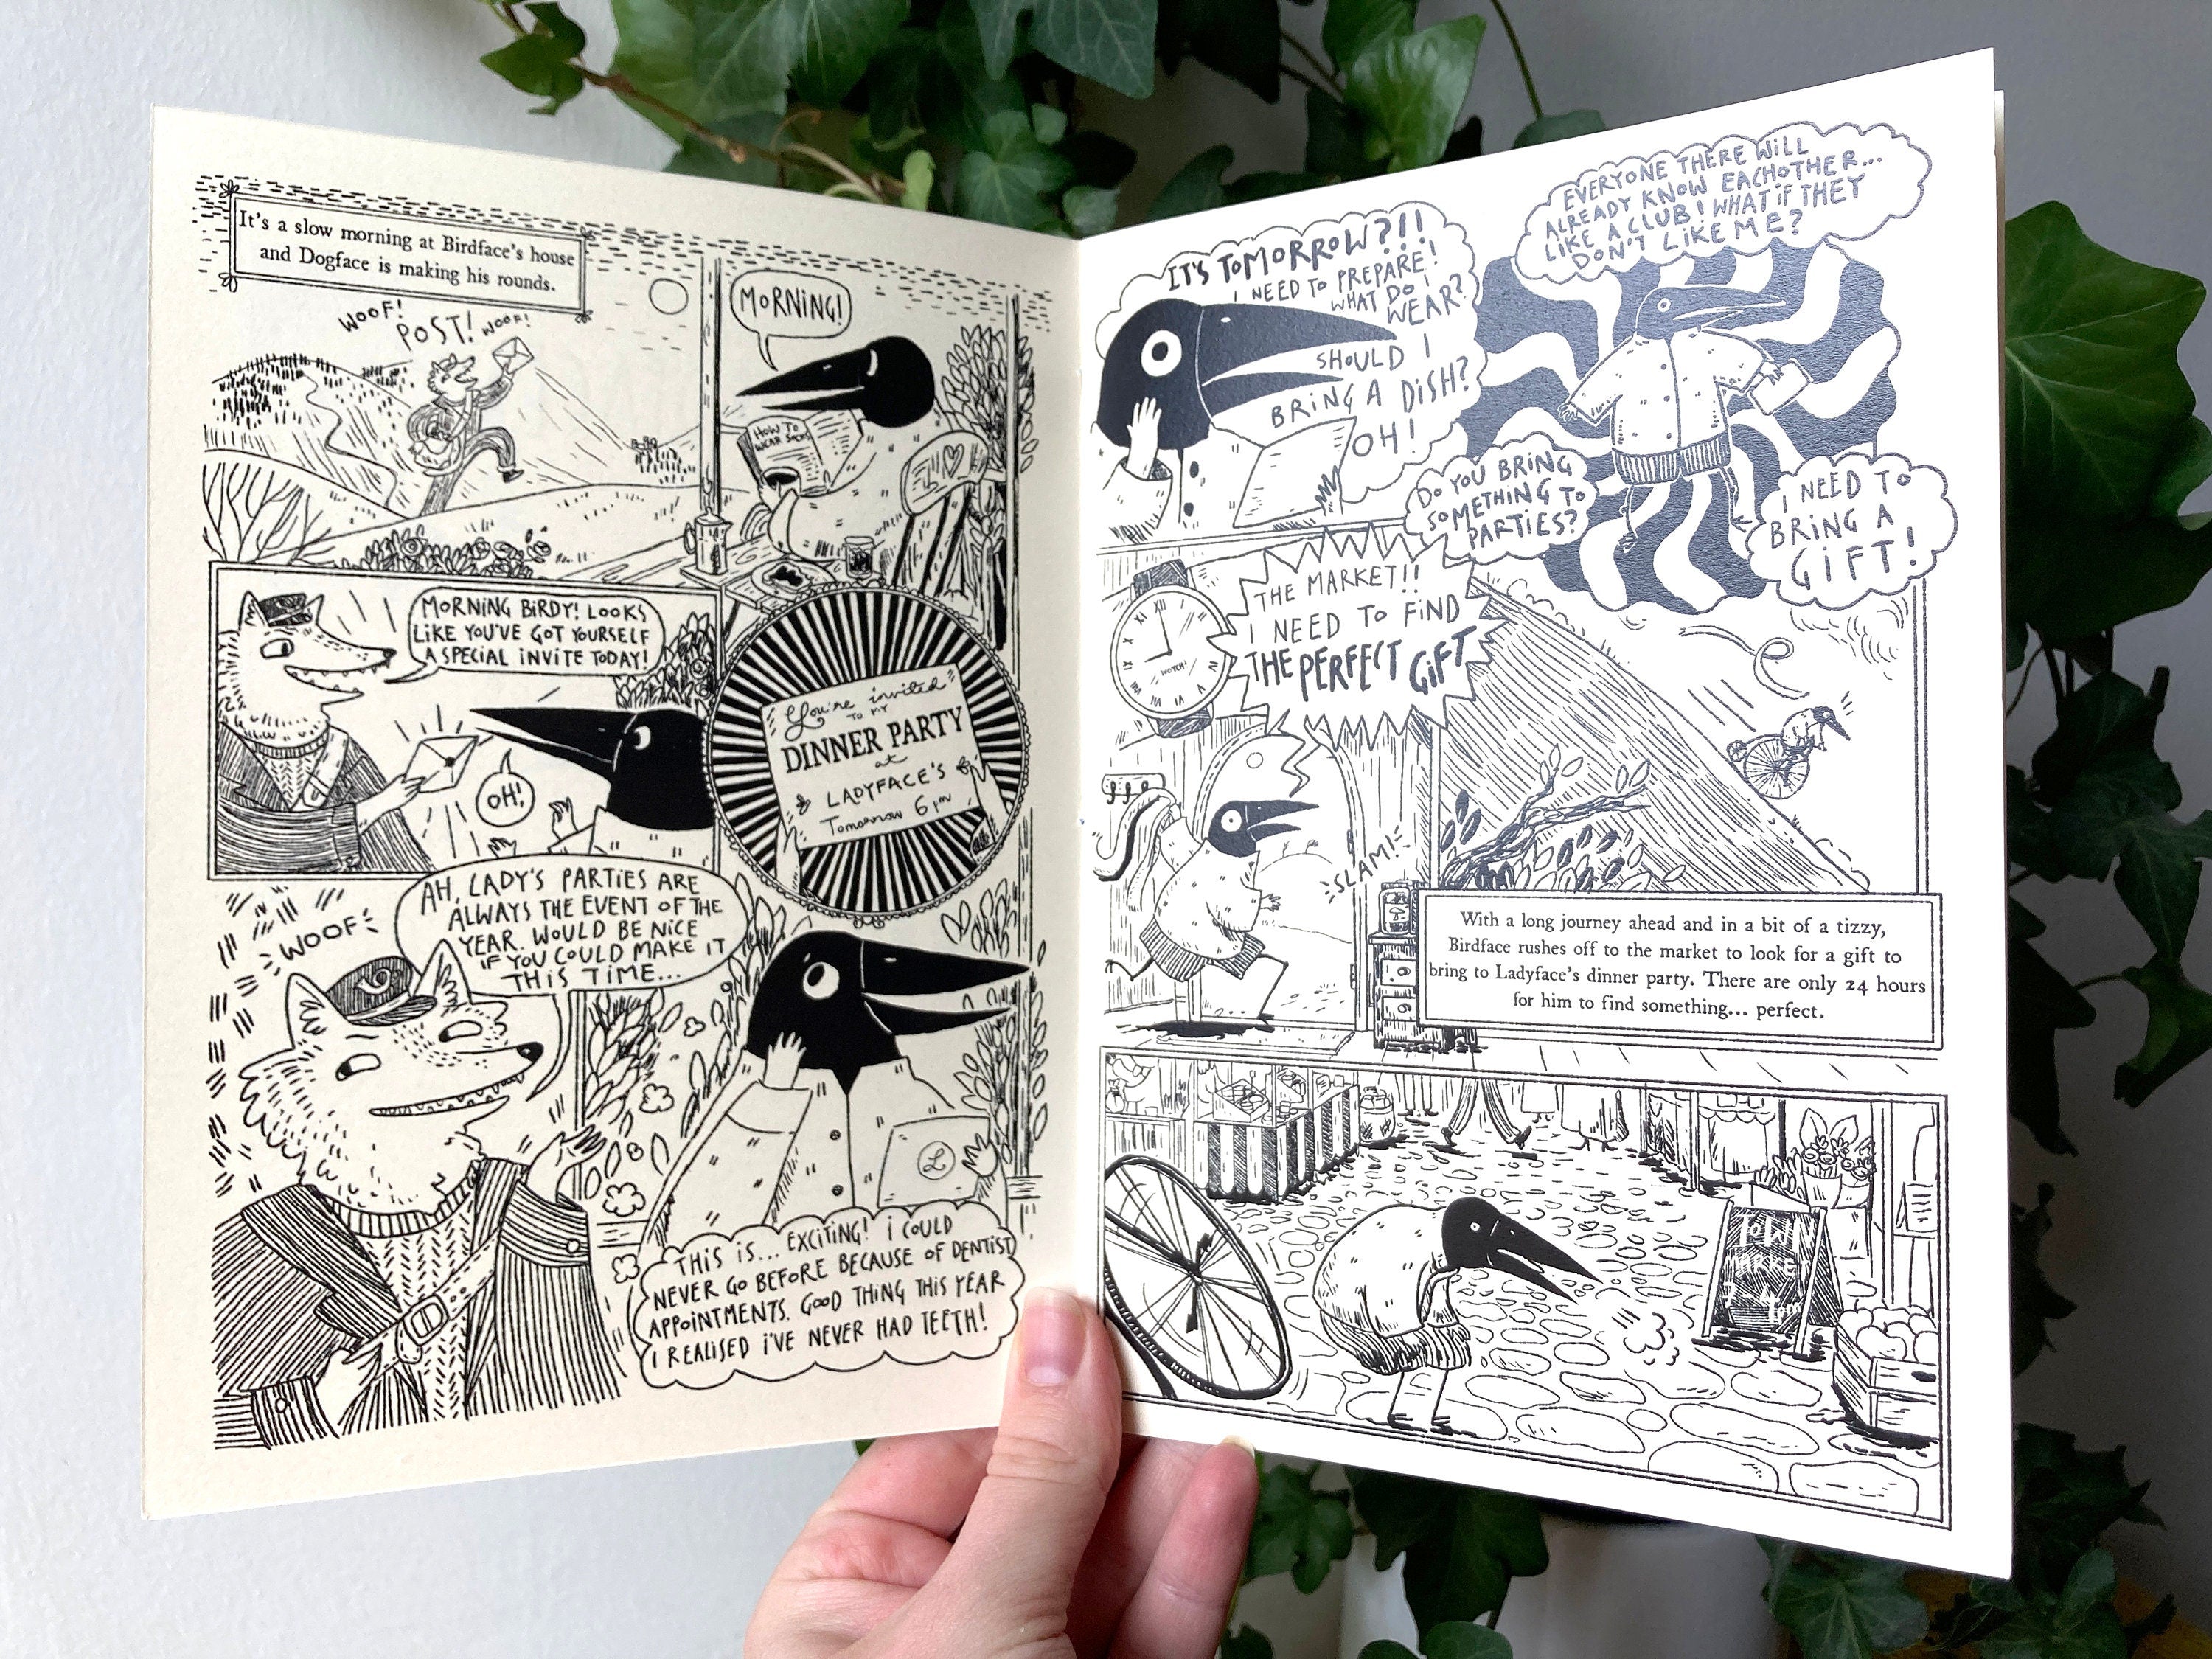 It's a slow morning at Birdface's house
and Dogface is making his rounds.
WOOF!
POST!
WOOF!
MORNING!
HOW TO
WEAR SOCKS
MORNING BIRDY! LOOKS
LIKE YOU'VE GOT YOURSELF
A SPECIAL INVITE TODAY!
OH!
You're invited
TO MY
DINNER PARTY
at
LADYFACE'S
Tomorrow 6pm
WOOF
AH, LADY'S PARTIES ARE
ALWAYS THE EVENT OF THE
YEAR. WOULD BE NICE
IF YOU COULD MAKE IT
THIS TIME...
L
THIS IS... EXCITING! I COULD
NEVER GO BEFORE BECAUSE OF DENTIST
APPOINTMENTS. GOOD THING THIS YEAR
I REALISED I'VE NEVER HAD TEETH!
IT'S TOMORROW?!!
I NEED TO PREPARE!
WHAT DO I
WEAR?
SHOULD I
BRING A DISH?
OH!
EVERYONE THERE WILL
ALREADY KNOW EACHOTHER...
LIKE A CLUB! WHAT IF THEY
DON'T LIKE ME?
DO YOU BRING
SOMETHING TO
PARTIES?
I NEED TO
BRING A
GIFT!
THE MARKET!!
I NEED TO FIND
THE PERFECT GIFT
WOTCH!
SLAM!
With a long journey ahead and in a bit of a tizzy,
Birdface rushes off to the market to look for a gift to
bring to Ladyface's dinner party. There are only 24 hours
for him to find something... perfect.
TOWN
MARKET